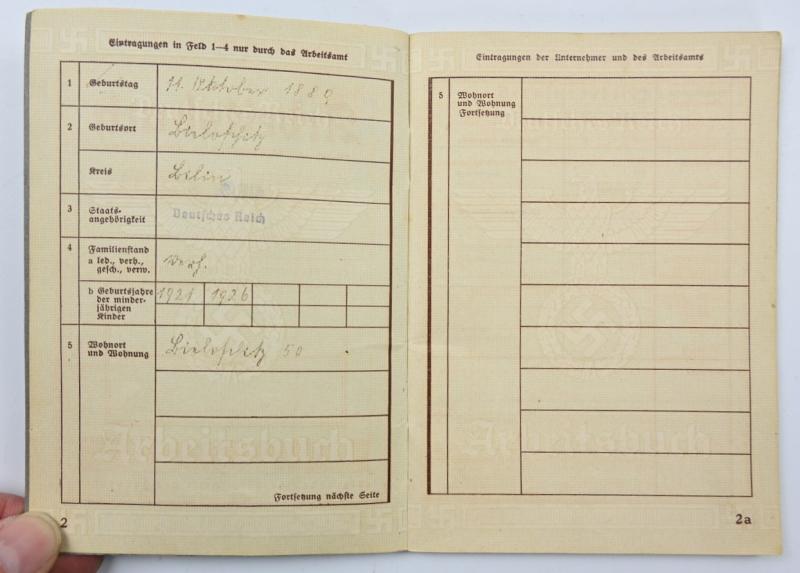 Eintragungen in Feld 1—4 nur durch das Arbeitsamt
1 Geburtstag 11. Oktober 1889
2 Geburtsort Bieloschitz
Kreis Bilin
3 Staats-
angehörigkeit Deutsches Reich
4 Familienstand
a led., verh.,
gesch., verw. verh.
b Geburtsjahre 1921 1926
der minder-
jährigen
Kinder
5 Wohnort
und Wohnung Bieloschitz 50
Fortsetzung nächste Seite
Arbeitsbuch
2
Eintragungen der Unternehmer und des Arbeitsamts
5 Wohnort
und Wohnung
Fortsetzung
Arbeitsbuch
2a